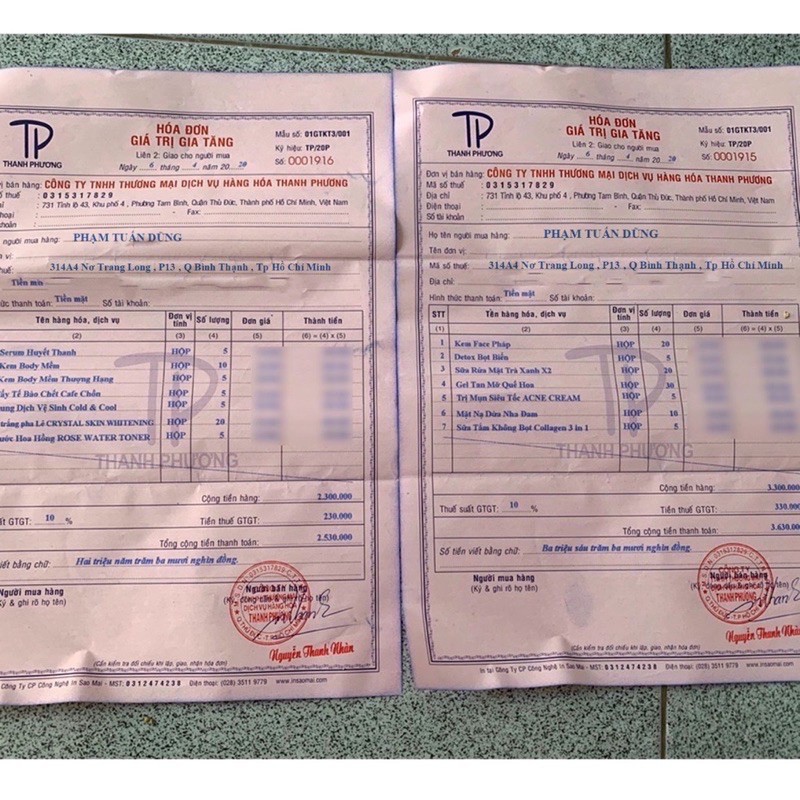 TP
THANH PHƯƠNG
HÓA ĐƠN
GIÁ TRỊ GIA TĂNG
Liên 2: Giao cho người mua
Ngày 6 tháng 4 năm 20 20
Mẫu số: 01GTKT3/001
Ký hiệu: TP/20P
Số: 0001916
vị bán hàng: CÔNG TY TNHH THƯƠNG MẠI DỊCH VỤ HÀNG HÓA THANH PHƯƠNG
thuế : 0315317829
chỉ : 731 Tỉnh lộ 43, Khu phố 4 , Phường Tam Bình, Quận Thủ Đức, Thành phố Hồ Chí Minh, Việt Nam
thoại : - Fax:
khoản :
người mua hàng: PHẠM TUẤN DŨNG
vị:
thuế: 314A4 Nơ Trang Long , P13 , Q Bình Thạnh , Tp Hồ Chí Minh
thức thanh toán: Tiền mặt Số tài khoản:
Tên hàng hóa, dịch vụ Đơn vị tính Số lượng Đơn giá Thành tiền
(2) (3) (4) (5) (6) = (4) x (5)
Serum Huyết Thanh HỘP 5
Kem Body Mềm HỘP 10
Kem Body Mềm Thượng Hạng HỘP 5
ẩy Tế Bào Chết Cafe Chồn HỘP 5
ung Dịch Vệ Sinh Cold & Cool HỘP 5
trắng pha Lê CRYSTAL SKIN WHITENING HỘP 20
ước Hoa Hồng ROSE WATER TONER HỘP 5
THANH PHƯƠNG
Cộng tiền hàng: 2.300.000
suất GTGT: 10 % Tiền thuế GTGT: 230.000
Tổng cộng tiền thanh toán: 2.530.000
viết bằng chữ: Hai triệu năm trăm ba mươi nghìn đồng.
Người mua hàng
(Ký & ghi rõ họ tên)
Người bán hàng
DỊCH VỤ HÀNG HÓA
THANH PHƯƠNG
Nguyễn Thanh Nhân
(Cần kiểm tra đối chiếu khi lập, giao, nhận hóa đơn)
Công Ty CP Công Nghệ In Sao Mai - MST: 0312474238 Điện thoại: (028) 3511 9779 www.insaomai.com
TP
THANH PHƯƠNG
HÓA ĐƠN
GIÁ TRỊ GIA TĂNG
Liên 2: Giao cho người mua
Ngày 6 tháng 4 năm 20 20
Mẫu số: 01GTKT3/001
Ký hiệu: TP/20P
Số: 0001915
Đơn vị bán hàng: CÔNG TY TNHH THƯƠNG MẠI DỊCH VỤ HÀNG HÓA THANH PHƯƠNG
Mã số thuế : 0315317829
Địa chỉ : 731 Tỉnh lộ 43, Khu phố 4 , Phường Tam Bình, Quận Thủ Đức, Thành phố Hồ Chí Minh, Việt Nam
Điện thoại : - Fax:
Số tài khoản :
Họ tên người mua hàng: PHẠM TUẤN DŨNG
Tên đơn vị:
Mã số thuế: 314A4 Nơ Trang Long , P13 , Q Bình Thạnh , Tp Hồ Chí Minh
Địa chỉ:
Hình thức thanh toán: Tiền mặt Số tài khoản:
STT Tên hàng hóa, dịch vụ Đơn vị tính Số lượng Đơn giá Thành tiền
(1) (2) (3) (4) (5) (6) = (4) x (5)
1 Kem Face Pháp HỘP 20
2 Detox Bọt Biển HỘP 5
3 Sữa Rửa Mặt Trà Xanh X2 HỘP 20
4 Gel Tan Mỡ Quế Hoa HỘP 30
5 Trị Mụn Siêu Tốc ACNE CREAM HỘP 5
6 Mặt Nạ Dừa Nha Đam HỘP 10
7 Sữa Tắm Không Bọt Collagen 3 in 1 HỘP 5
THANH PHƯƠNG
Cộng tiền hàng: 3.300.000
Thuế suất GTGT: 10 % Tiền thuế GTGT: 330.000
Tổng cộng tiền thanh toán: 3.630.000
Số tiền viết bằng chữ: Ba triệu sáu trăm ba mươi nghìn đồng.
Người mua hàng
(Ký & ghi rõ họ tên)
Người bán hàng
CÔNG TY
THANH PHƯƠNG
Nguyễn Thanh Nhân
(Cần kiểm tra đối chiếu khi lập, giao, nhận hóa đơn)
In tại Công Ty CP Công Nghệ In Sao Mai - MST: 0312474238 Điện thoại: (028) 3511 9779 www.insaomai.com